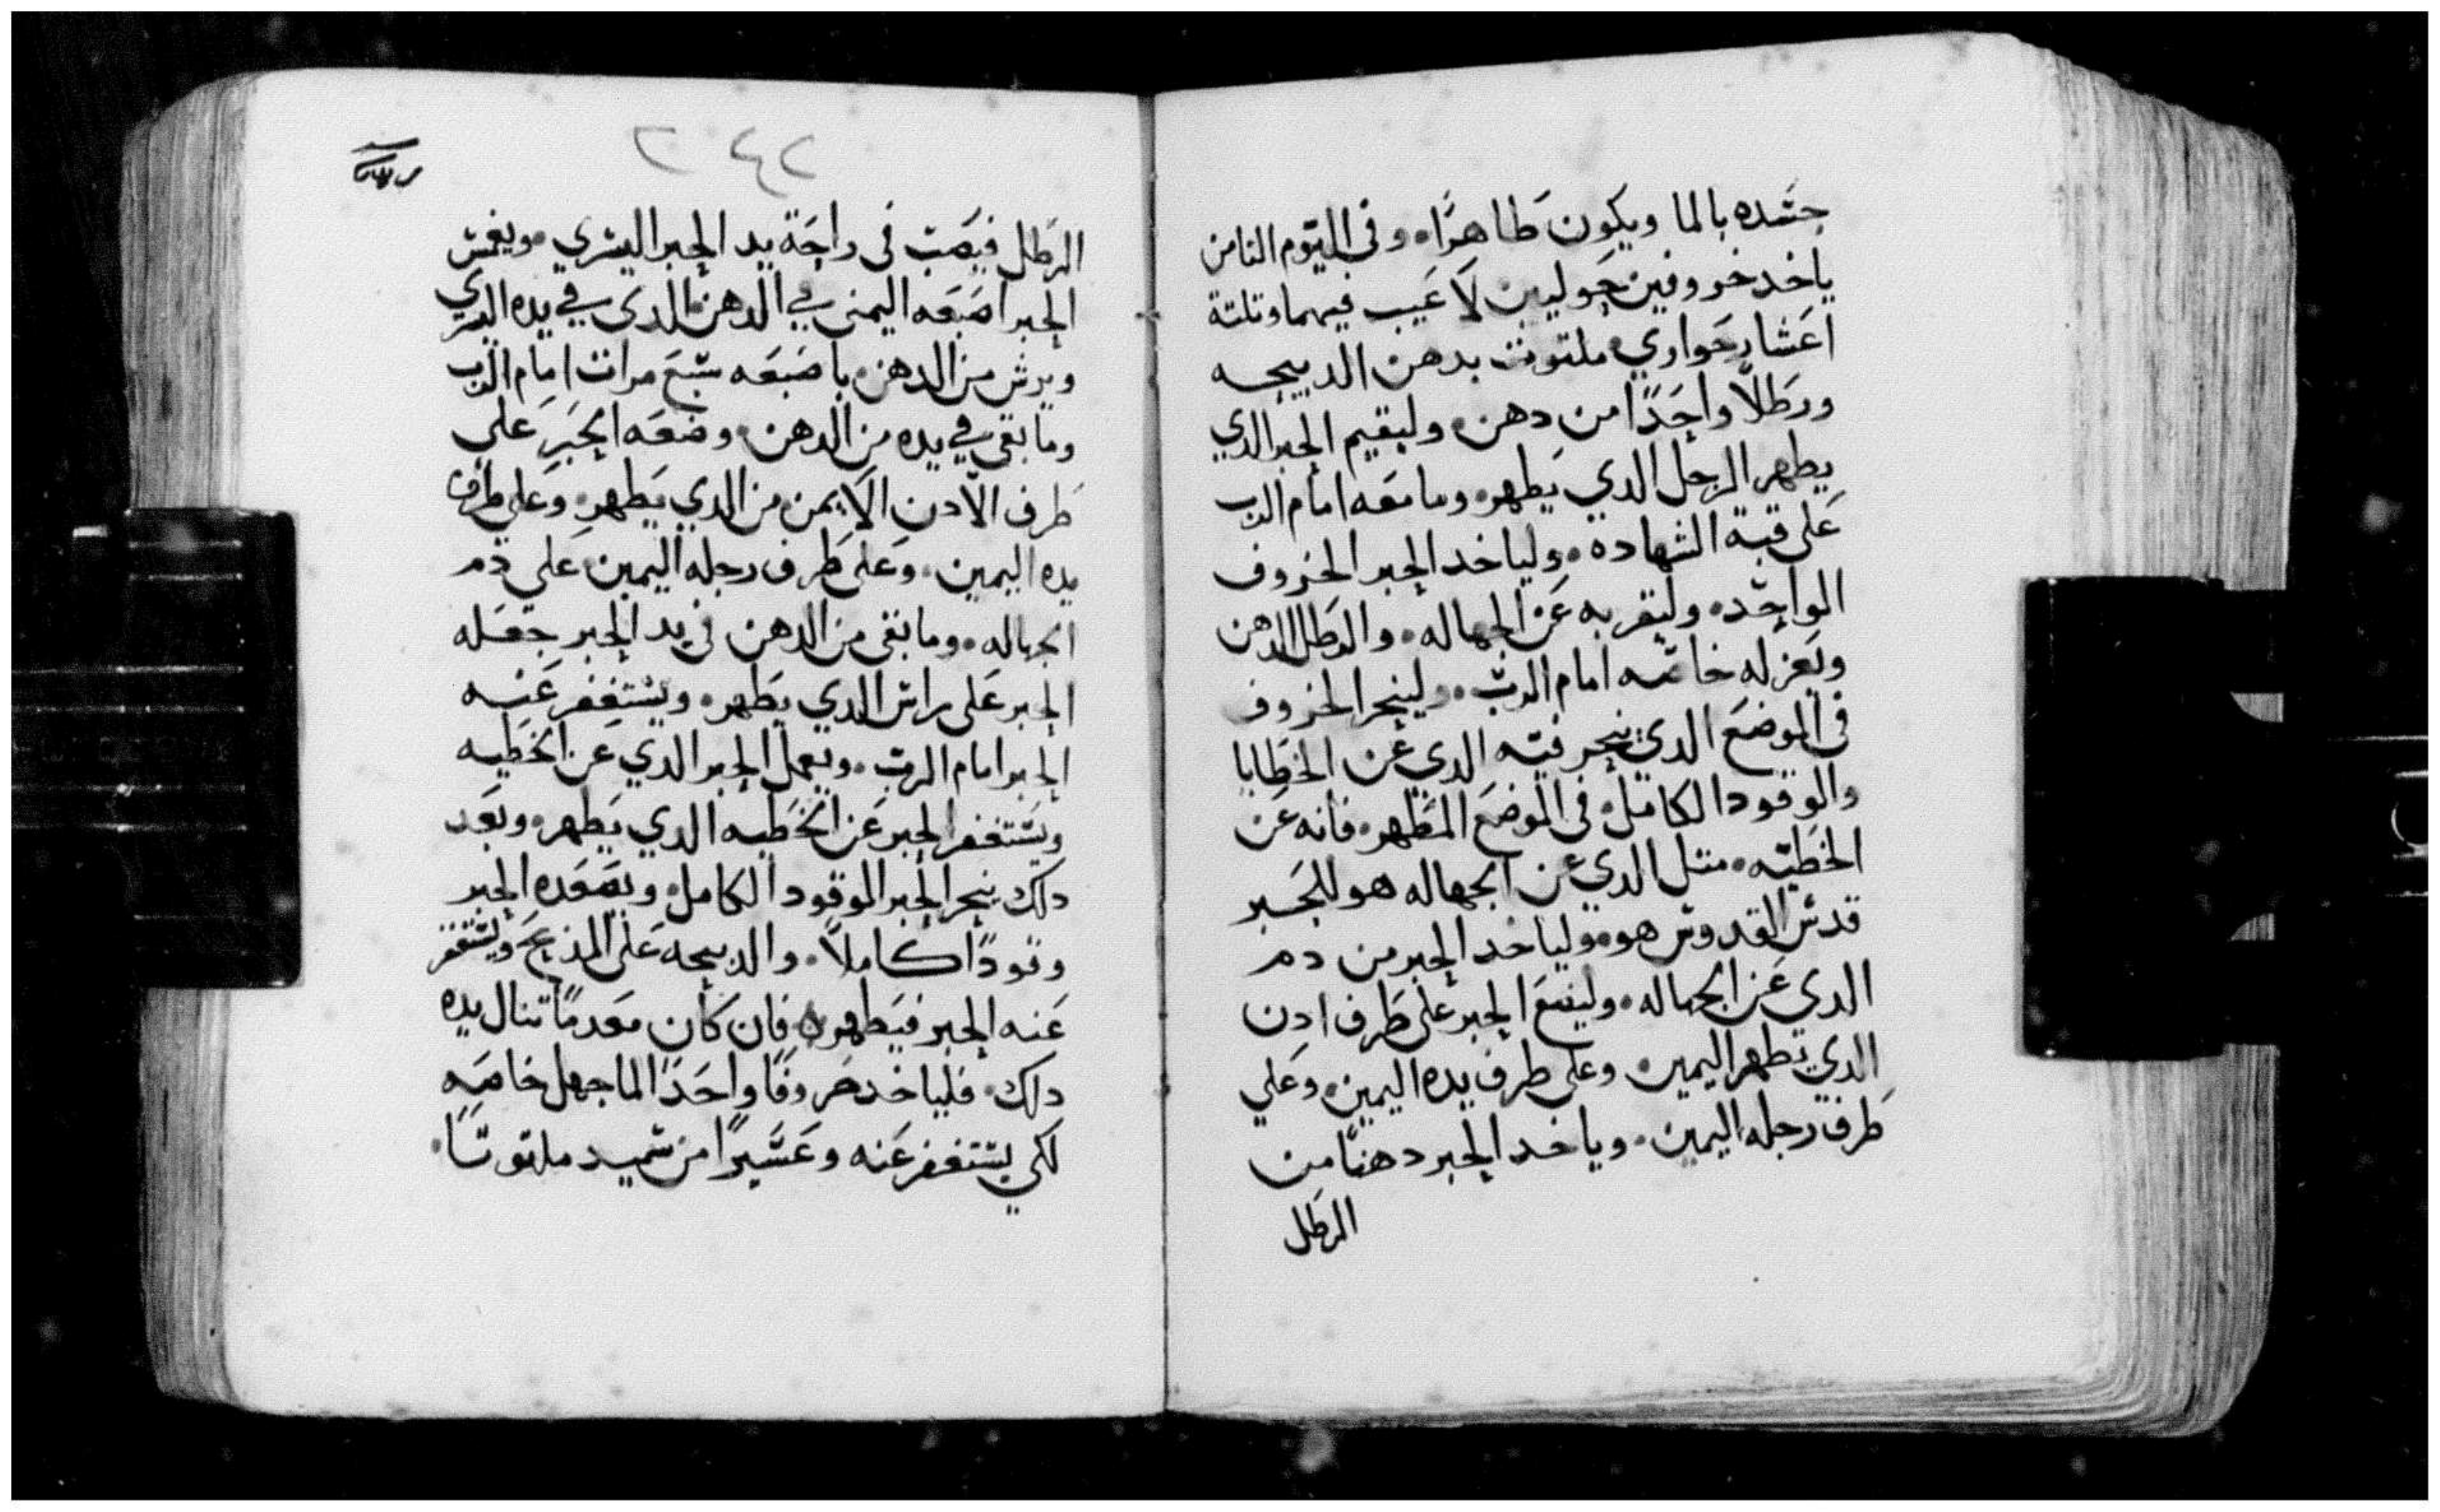 جسده بالما ويكون طاهرًا. وفي اليوم التامن
ياخد خروفين حوليين لا عيب فيهما وتلتة
اعشار حواري ملتوت بدهن الدبيحه
ورطلًا واحدًا من دهن. وليقيم الحبر الدي
يطهر الرجل الدي يطهر. وما معه امام الرب
على قبة الشهاده. ولياخد الحبر الخروف
الواحد. وليقربه عن الجهاله. والرطل الدهن
ويعزله خاصه امام الرب. ولينحر الخروف
في الموضع الدي ينحر فيه الدي عن الخطايا
والوقود الكامل. في الموضع المطهر. فانه عن
الخطيه. متل الدي عن الجهاله هو للحبر
قدس القدوس هو. ولياخد الحبر من دم
الدي عن الجهاله. وليضع الحبر على طرف ادن
الدي تطهر اليمين. وعلى طرف يده اليمين. وعلي
طرف رجله اليمين. وياخد الحبر دهنًا من
الرطل
٢٤٢
الرطل فيصب في راحة يد الحبر اليسري. ويغمس
الحبر اصبعه اليمنى في الدهن الدى في يده اليسري
ويرش من الدهن باصبعه سبع مرات امام الرب
وما بقى في يده من الدهن. وضعه الحبر على
طرف الادن الايمن من الدي يطهر. وعلى طرف
يده اليمين. وعلى طرف رجله اليمين على دم
الجهاله. وما بقى من الدهن في يد الحبر جعله
الحبر على راس الدي يطهر. ويستغفر عنه
الحبر امام الرب. ويعمل الحبر الدي عن الخطيه
ويستغفر الحبر عن الخطيه الدي يطهر. وبعد
دلك ينحر الحبر الوقود الكامل. ويصعده الحبر
وقودًا كاملًا. والدبيحه على المذبح ويستغفر
عنه الحبر فيطهر. فان كان معدمًا تنال يده
دلك. فلياخد خروفًا واحدًا لما جهل خاصه
لكي يستغفر عنه وعشيرًا من سميد ملتوتًا.